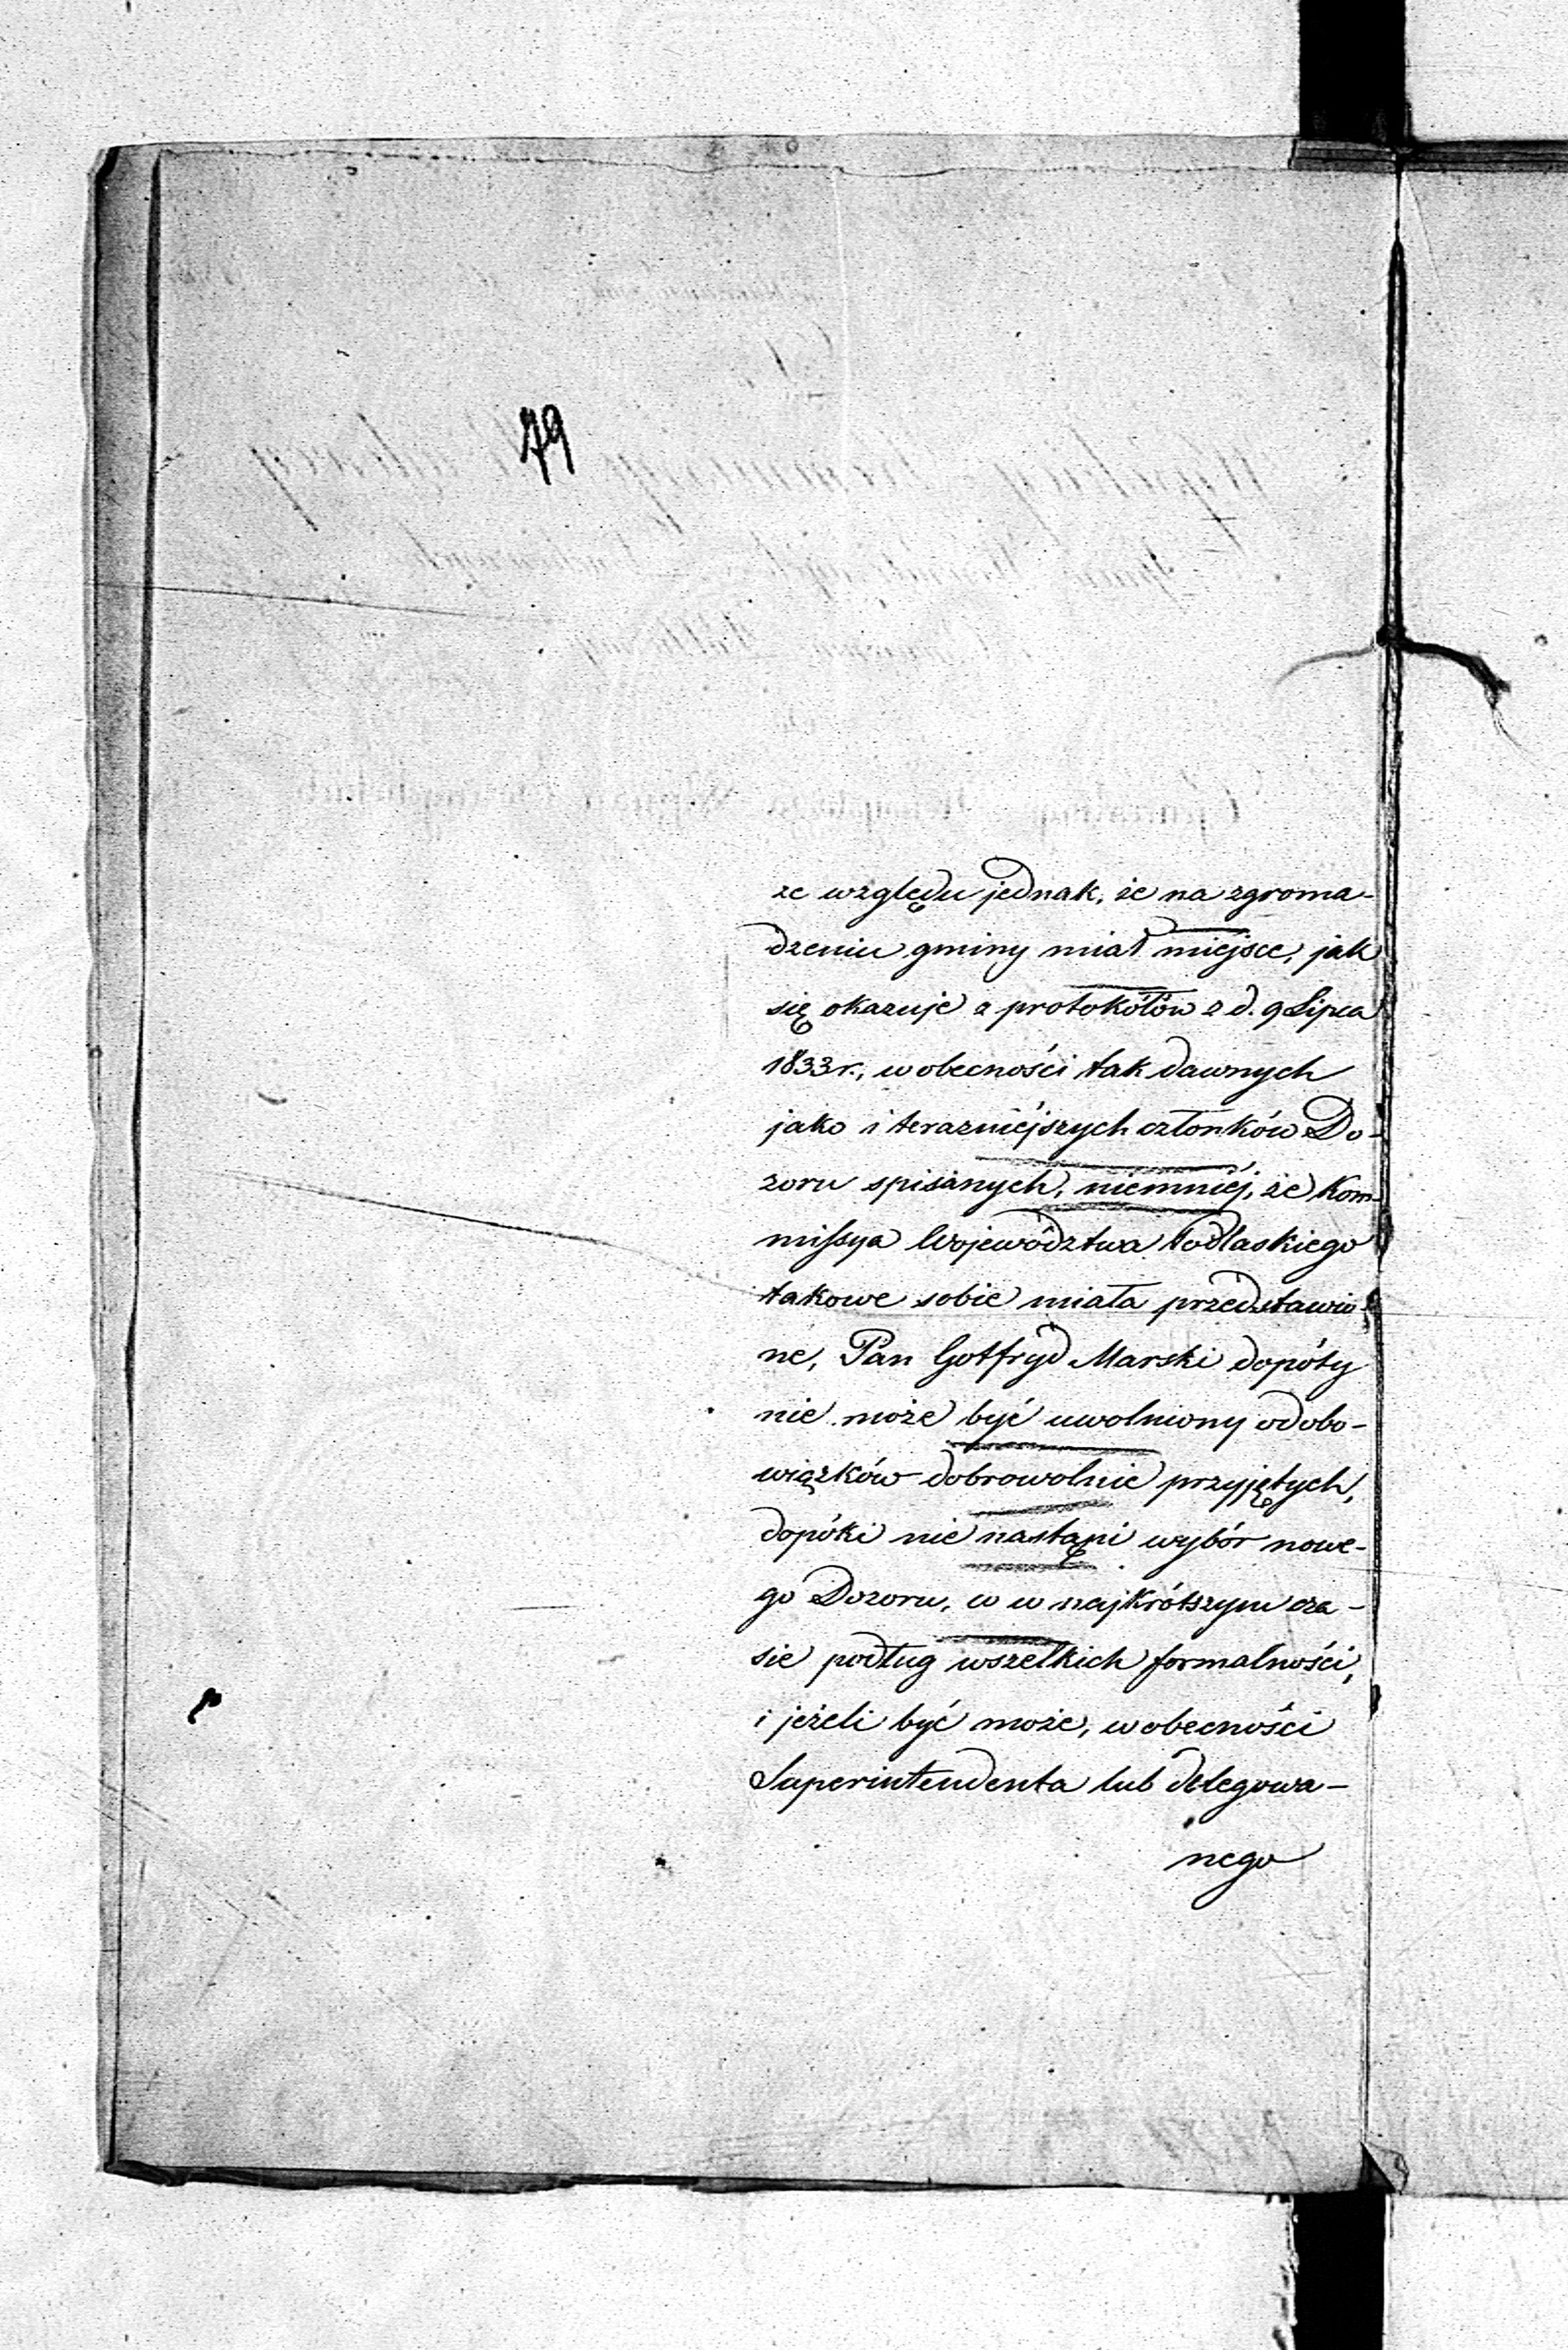 79
ze względu jednak, że na zgroma-
dzeniu gminy miał miejsce, jak
się okazuje z protokółów z d. 9 Lipca
1833 r., w obecności tak dawnych
jako i teraźniejszych członków Do-
zoru spisanych, niemniej, że Kom-
missya Województwa Podlaskiego
takowe sobie miała przedstawio-
ne, Pan Gotfryd Marski dopóty
nie może być uwolniony od obo-
wiązków dobrowolnie przyjętych,
dopóki nie nastąpi wybór nowe-
go Dozoru, w w najkrótszym cza-
sie podług wszelkich formalności,
i jeżeli być może, w obecności
Superintendenta lub delegowa-
nego